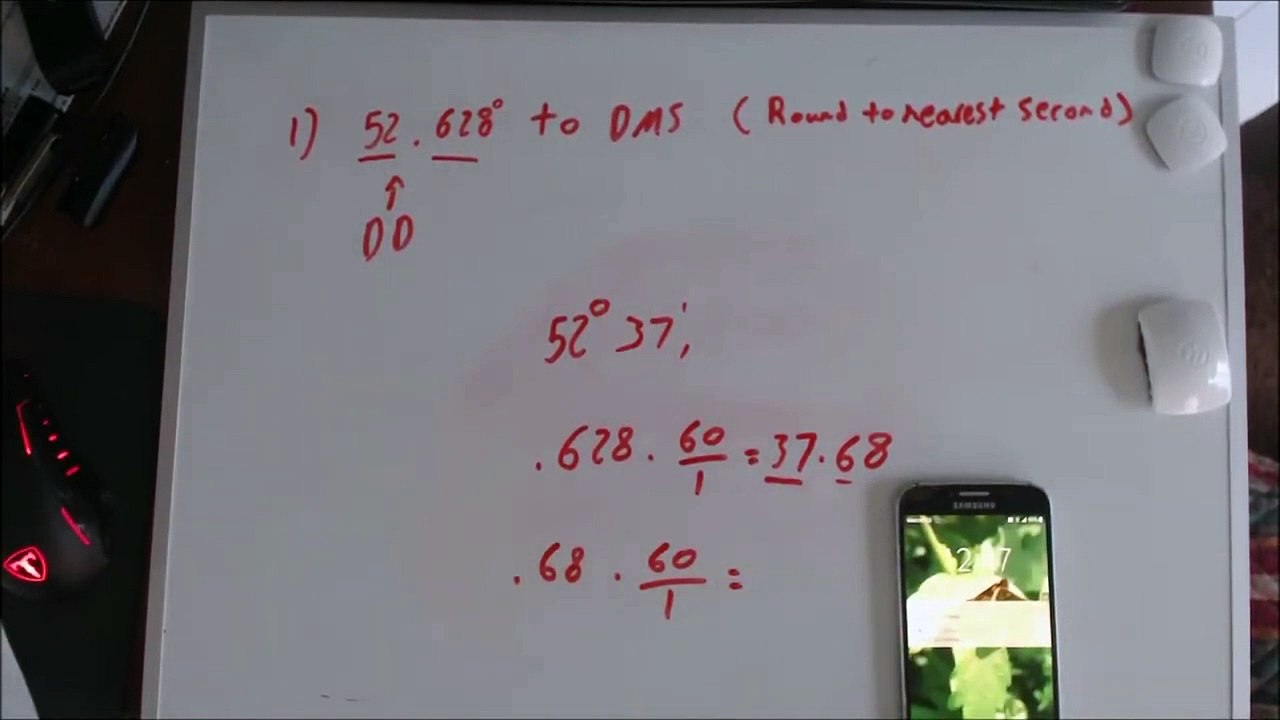 1) 52.628° to DMS (Round to nearest second)
DD
52° 37',
.628 · 60/1 = 37.68
.68 · 60/1 =
SAMSUNG